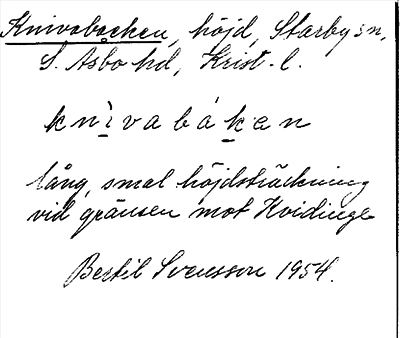 Knivabacken, höjd, Starby sn,
S. Åsbo hd, Krist. l.
knìvabákan
lång, smal höjdsträckning
vid gränsen mot Kvidinge
Bertil Svensson 1954.